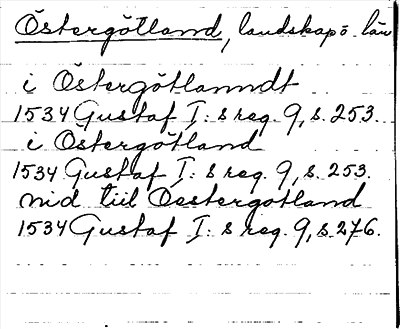 Östergötland, landskap o. län
i Östergötlanndt
1534 Gustaf I: s reg. 9, s. 253.
i Östergötland
1534 Gustaf I: s reg. 9, s. 253.
nid tiil Oestergotland
1534 Gustaf I: s reg. 9, s. 276.